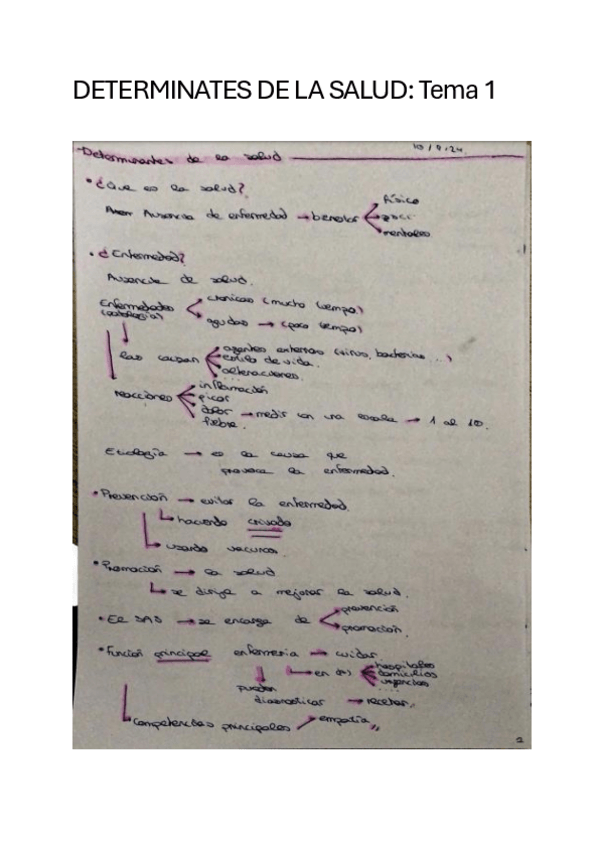 DETERMINATES DE LA SALUD: Tema 1
Determinantes de la salud
• ¿Que es la salud?
Ausencia de enfermedad → bienestar
físico
mentales
• ¿Enfermedad?
Ausencia de salud.
Enfermedades
(patología)
cronicas (mucho tiempo)
agudas → (poco tiempo)
las causan
agentes externos (virus, bacterias ...)
estilo de vida.
alteraciones.
reacciones
inflamación
picor
dolor → medir con una escala → 1 al 10.
fiebre.
Etiología → es la causa que
provoca la enfermedad.
• Prevención → evitar la enfermedad.
haciendo cribado
usando vacunas
• Promoción → la salud
se dirige a mejorar la salud.
• El SAS → se encarga de
prevención
promoción.
• Función principal enfermeria → cuidar
en
hospitales
domicilios
urgencias
pueden
diagnosticar → recetar
competencias principales → empatía
2